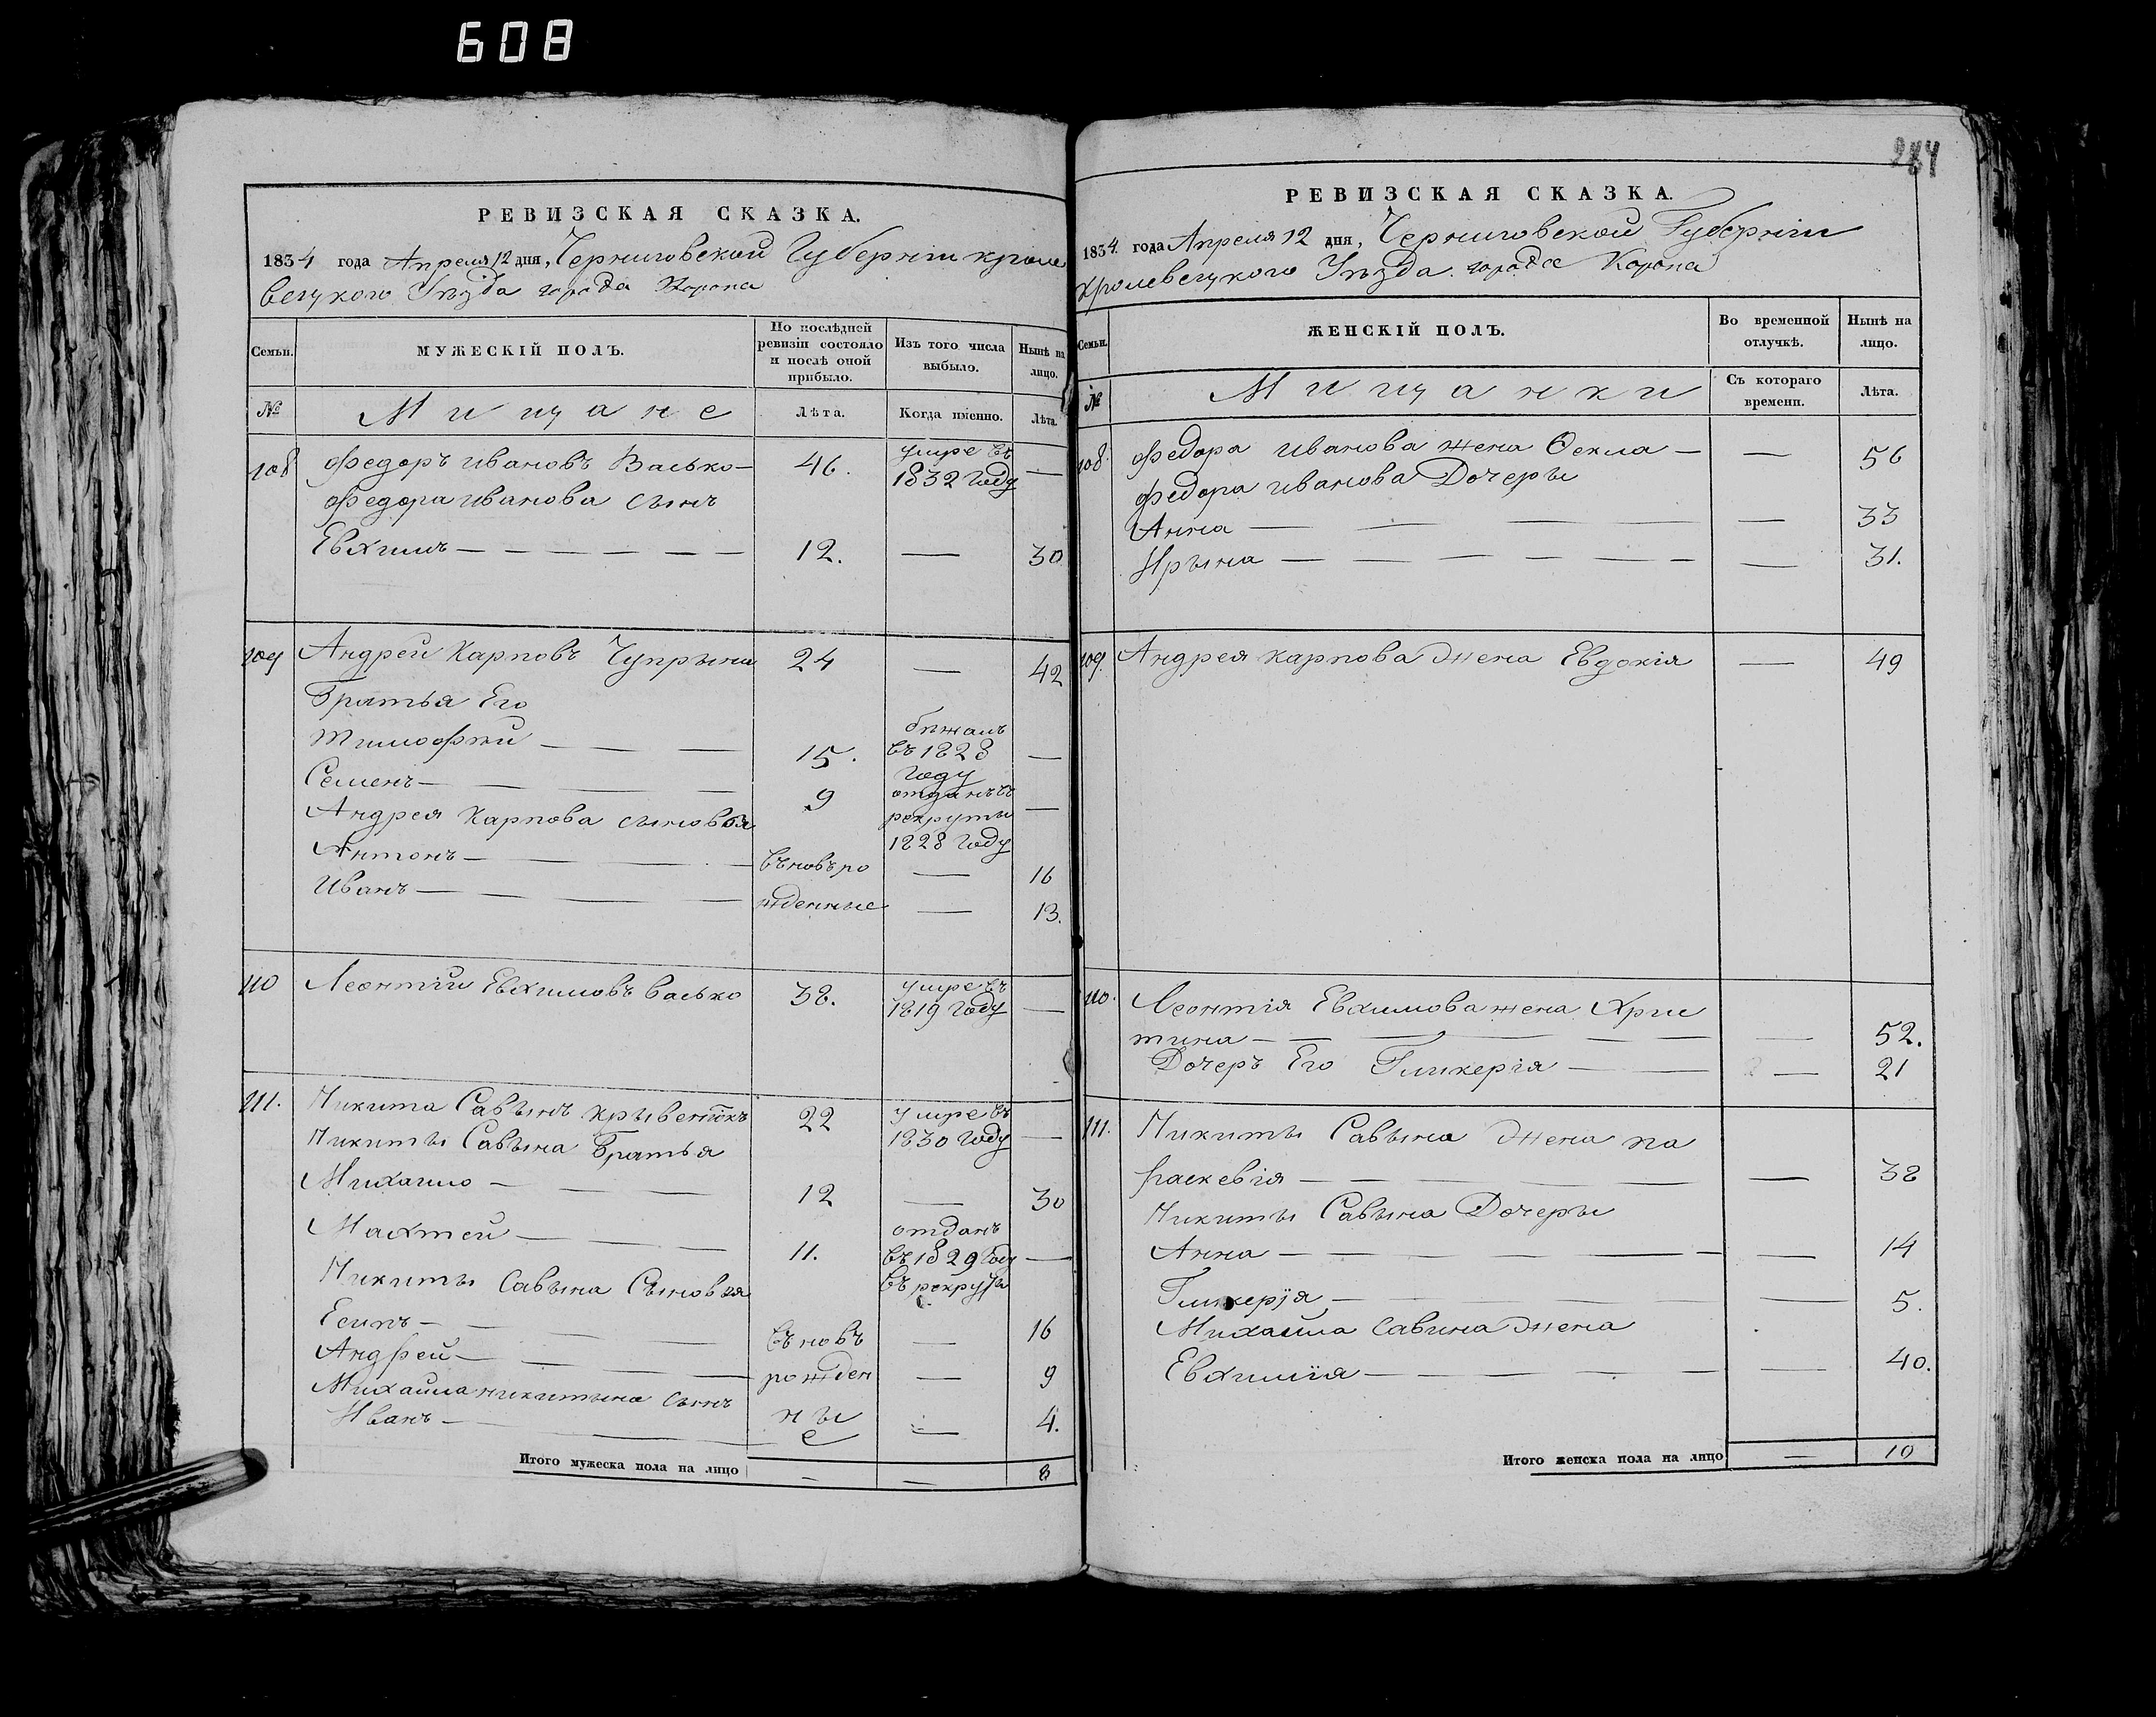 608
РЕВИЗСКАЯ СКАЗКА.
1834 года Апреля 12 дня, Черниговской Губернии кроле
вецкого Уѣзда города Коропа
Семьи.
МУЖЕСКІЙ ПОЛЪ.
По послѣдней ревизіи состояло и послѣ оной прибыло.
Изъ того числа выбыло.
Нынѣ на лицо.
№
Мищане
Лѣта.
Когда именно.
Лѣта.
108 Федоръ Ивановъ Васько 46. умре въ 1832 году —
Федора Иванова сынъ
Евхимъ 12. — 30
109 Андрей Карповъ Чупрына 24 — 42
Братья Его
Тимофѣй 15. бѣжалъ въ 1828 году —
Семенъ 9 отданъ въ рекруты 1828 году —
Андрея Карпова сыновья
Антонъ — вьновьро — 16
Иванъ — жденные — 13.
110 Леонтій Евхимовъ Васько 38. умре въ 1819 году —
111. Никита Савынъ Крывенокъ 22 умре въ 1830 году —
Никиты Савына Братья
Михайло — 12 — 30
Махтей — 11. отданъ въ 1829 году въ рекруты —
Никиты Савына Сыновья
Есипъ — вьновь — 16
Андрей — рожден — 9
Михайла никитына сынъ
Иванъ — ны е — 4.
Итого мужеска пола на лицо — — 8
284
РЕВИЗСКАЯ СКАЗКА.
1834. года Апреля 12 дня, Черниговской Губерніи
кролевецкого Уѣзда города Коропа
Семьи.
ЖЕНСКІЙ ПОЛЪ.
Во временной отлучкѣ.
Нынѣ на лицо.
№
Мищанки
Съ котораго времени.
Лѣта.
108. Федора Иванова жена Ѳекла — — 56
Федора Иванова Дочеры
Анна — — 33
Ирына — — 31.
109. Андрея Карпова жена Евдокія — 49
110. Леонтія Евхимова жена Хрис
тина — — 52.
Дочерь Его Гликерія — — 21
111. Никиты Савына жена Па
раскевія — — 38
Никиты Савына Дочеры
Анна — — 14
Гликерія — — 5.
Михайла Савина жена
Евхимія — — 40.
Итого женска пола на лицо — 10